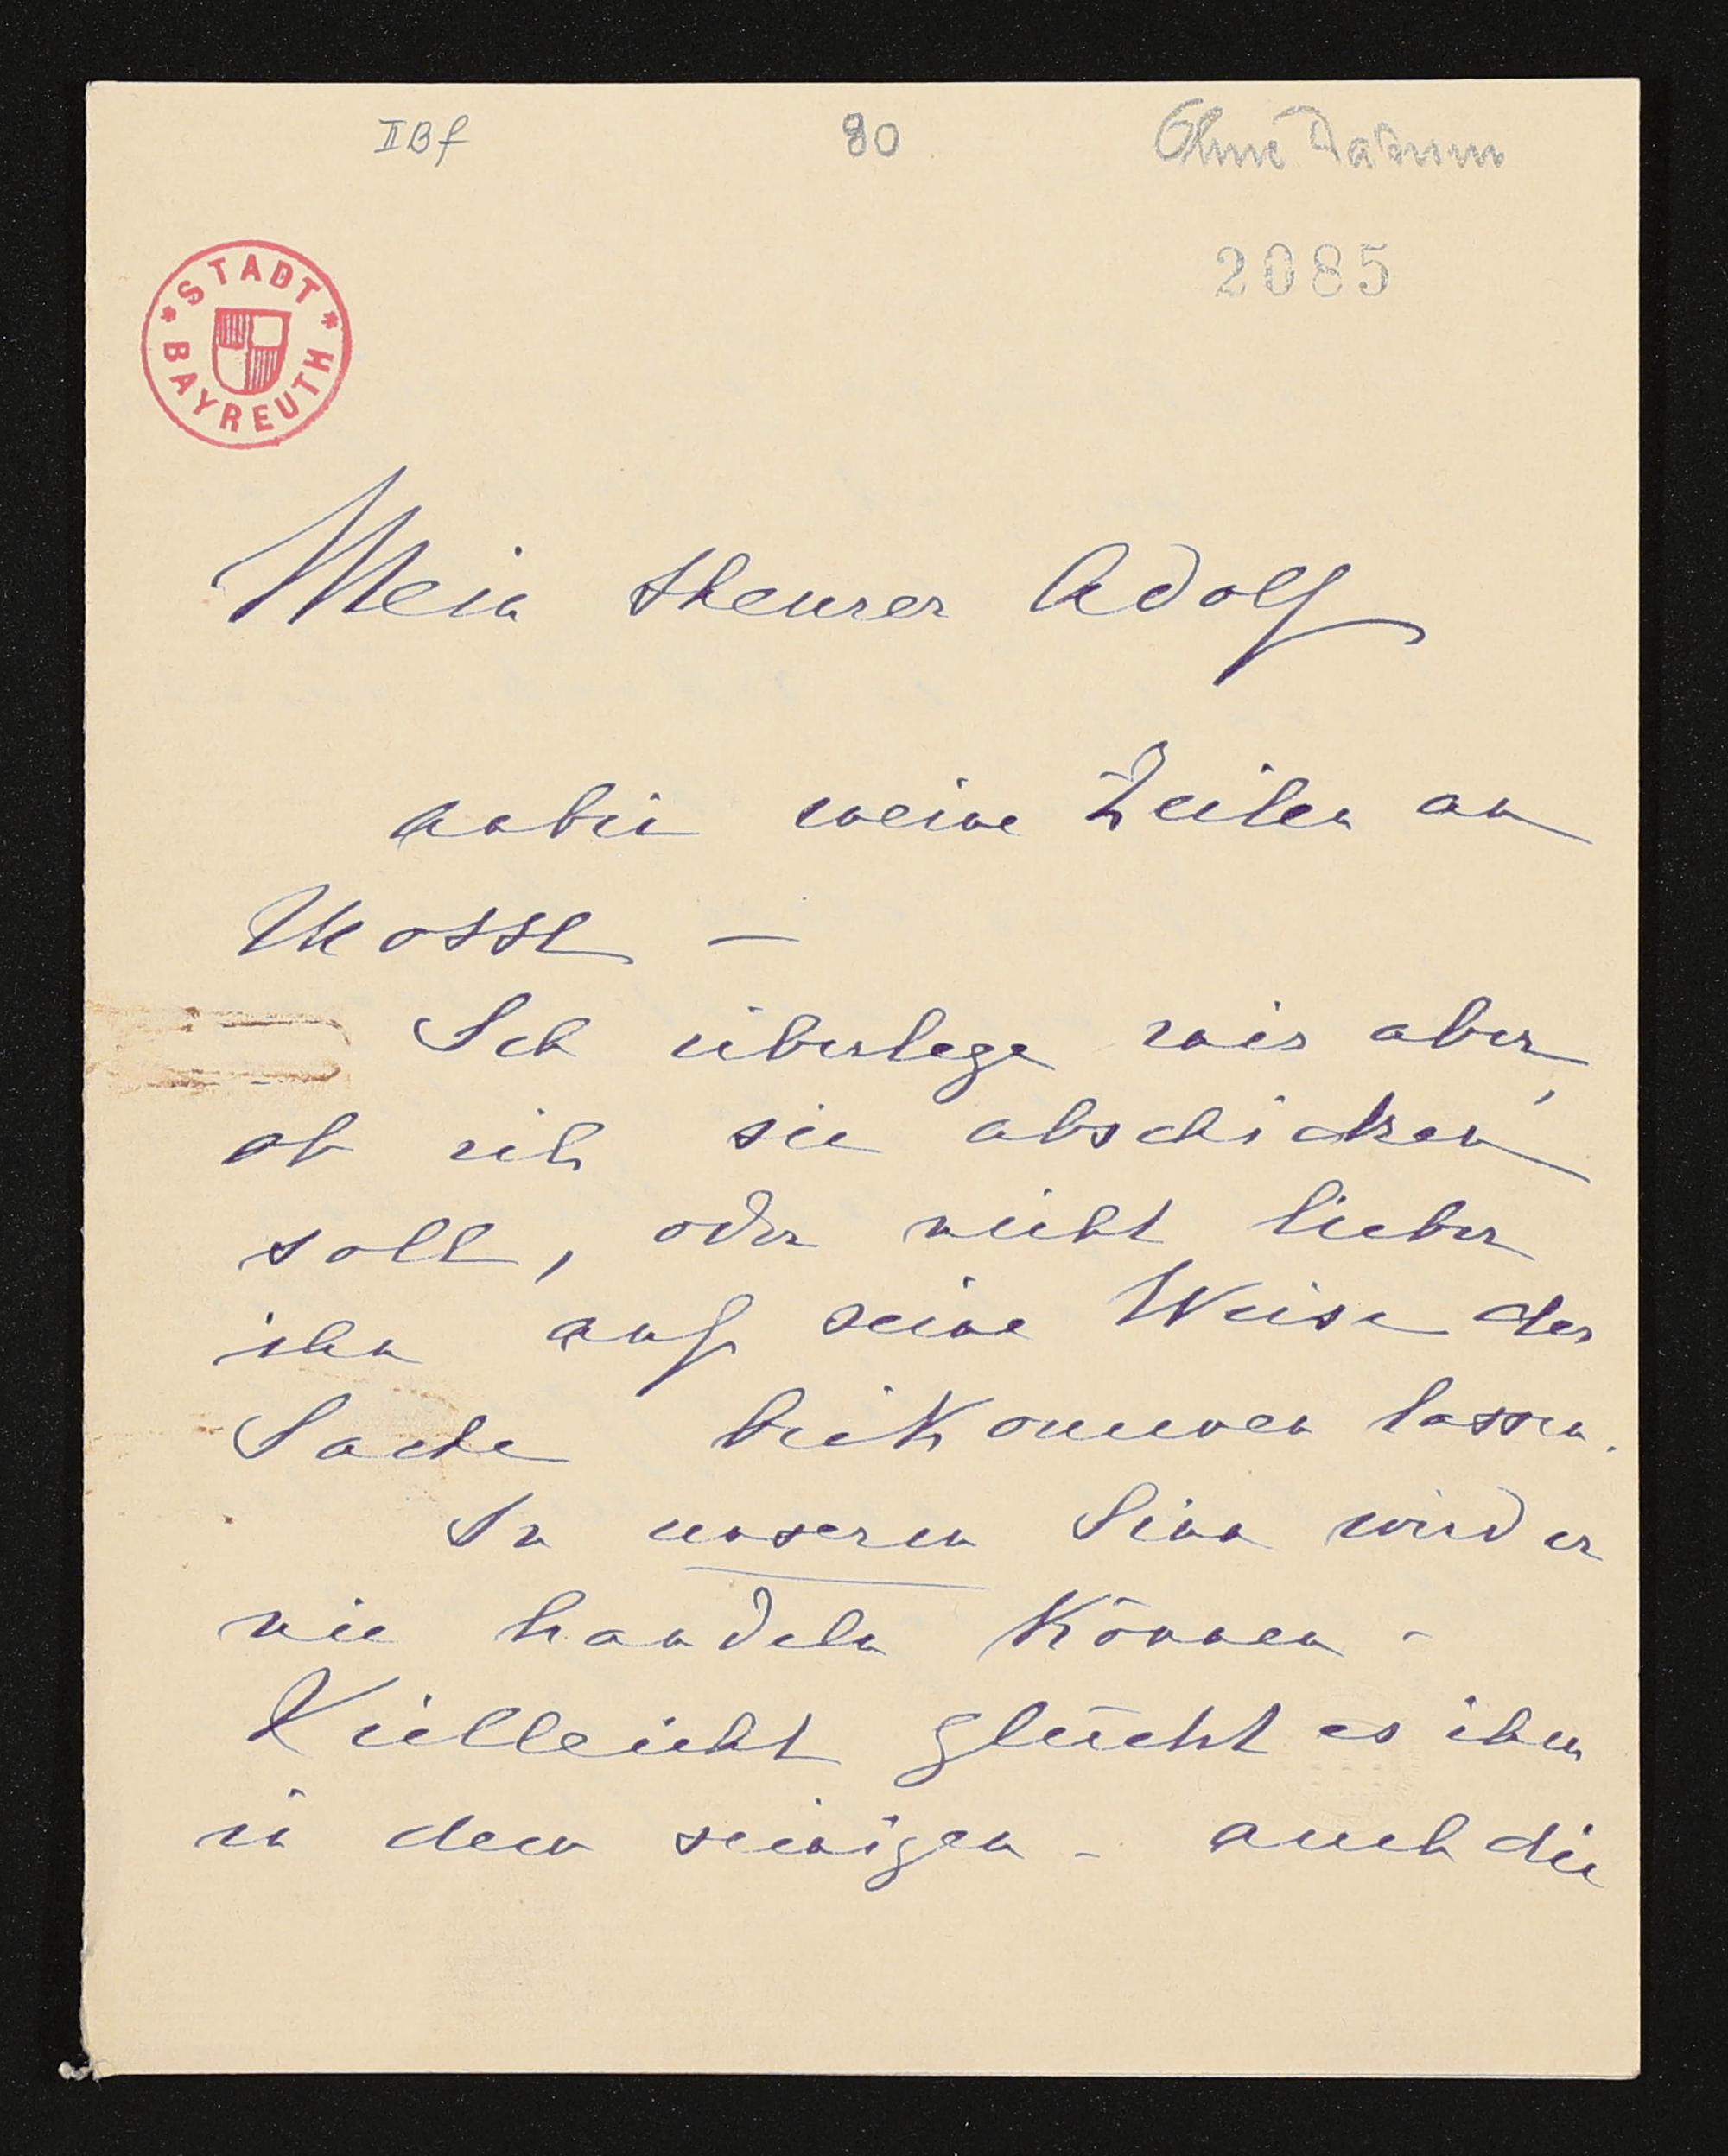 IIBf 80 Ohne Datum
2085
STADT BAYREUTH
Mein theurer Adolf
anbei meine Zeilen an
Mosse —
Ich überlege mir aber,
ob ich sie abschicken
soll, oder nicht lieber
ihn auf seine Weise der
Sache beikommen lassen.
In unserem Sinn wird er
nie handeln können -
Vielleicht glückt es ihm
in dem seinigen - auch die